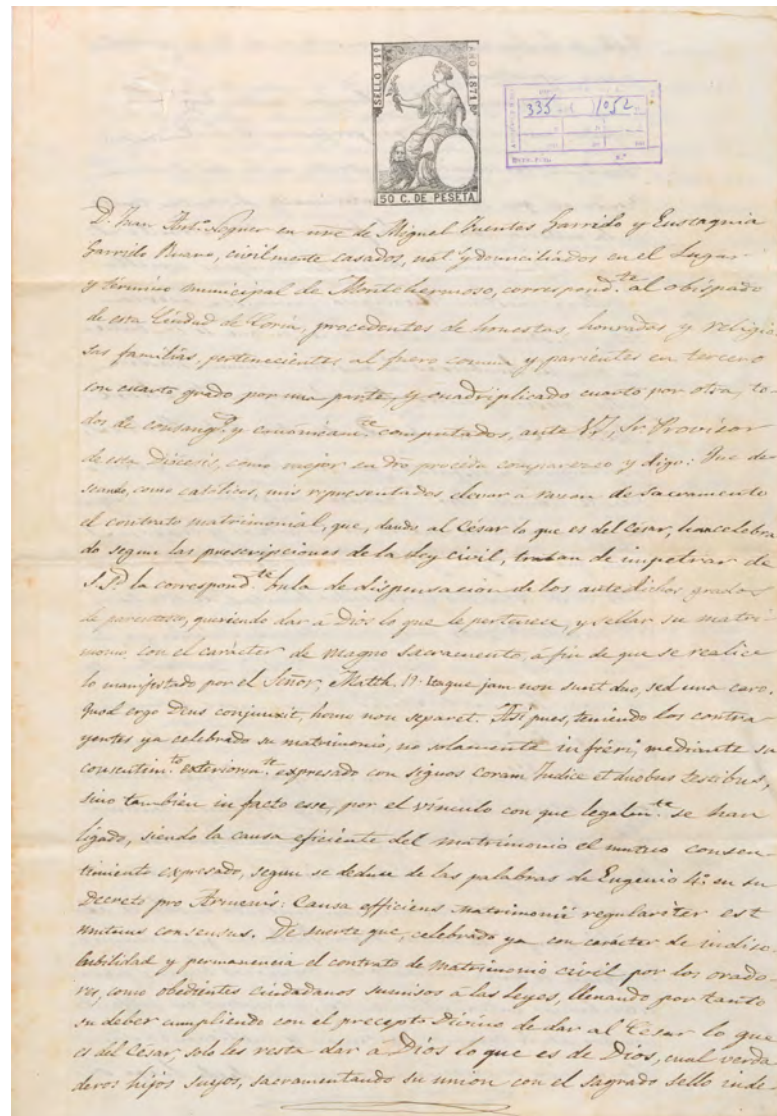 SELLO 11º
AÑO 1871
50 C. DE PESETA
335 1052
D. Juan Antº. Noguer en nre de Miguel Fuentes Garrido y Eustaquia
Garrido Bueno, civilmente casados, nat.s y domiciliados en el Lugar
y término municipal de Montehermoso, correspond.te al obispado
de esta Ciudad de Coria, procedentes de honestas, honradas y religio-
sas familias, pertenecientes al fuero comun y parientes en tercero
con cuarto grado por una parte, y cuadriplicado cuarto por otra, to-
dos de consang.d y canónicam.te computados, ante V. S. Sr. Provisor
de esta Diócesis, como mejor en dro proceda comparezco y digo: Que de-
seando, como católicos, mis representados elevar a razon de Sacramento
el contrato matrimonial, que, dando al César lo que es del César, han celebra
do segun las prescripciones de la Ley civil, tratan de impetrar de
S. S.d la correspond.te bula de dispensacion de los antedichos grados
de parentesco, queriendo dar á Dios lo que le pertenece, y sellar su matri-
monio, con el carácter de magno Sacramento, á fin de que se realice
lo manifestado por el Señor, Matth. 19: Itaque jam non sunt duo, sed una caro.
Quod ergo Deus conjunxit, homo non separet. Así pues, teniendo los contra-
yentes ya celebrado su matrimonio, no solamente in fieri, mediante su
consentim.to exteriorm.te expresado con signos coram Judice et duobus testibus,
sino tambien in facto esse, por el vínculo con que legalm.te se han
ligado, siendo la causa eficiente del matrimonio el mutuo consen-
timiento expresado, segun se deduce de las palabras de Eugenio 4º. en su
Decreto pro Armenis: Causa efficiens Matrimonii regulariter est
mutuus consensus. De suerte que, celebrado ya con carácter de indiso-
lubilidad y permanencia el contrato de Matrimonio civil por los orado-
res, como obedientes ciudadanos sumisos á las Leyes, llenando por tanto
su deber cumpliendo con el precepto Divino de dar al César lo que
es del César, solo les resta dar a Dios lo que es de Dios, cual verda
deros hijos suyos, sacramentando su union con el sagrado sello inde-